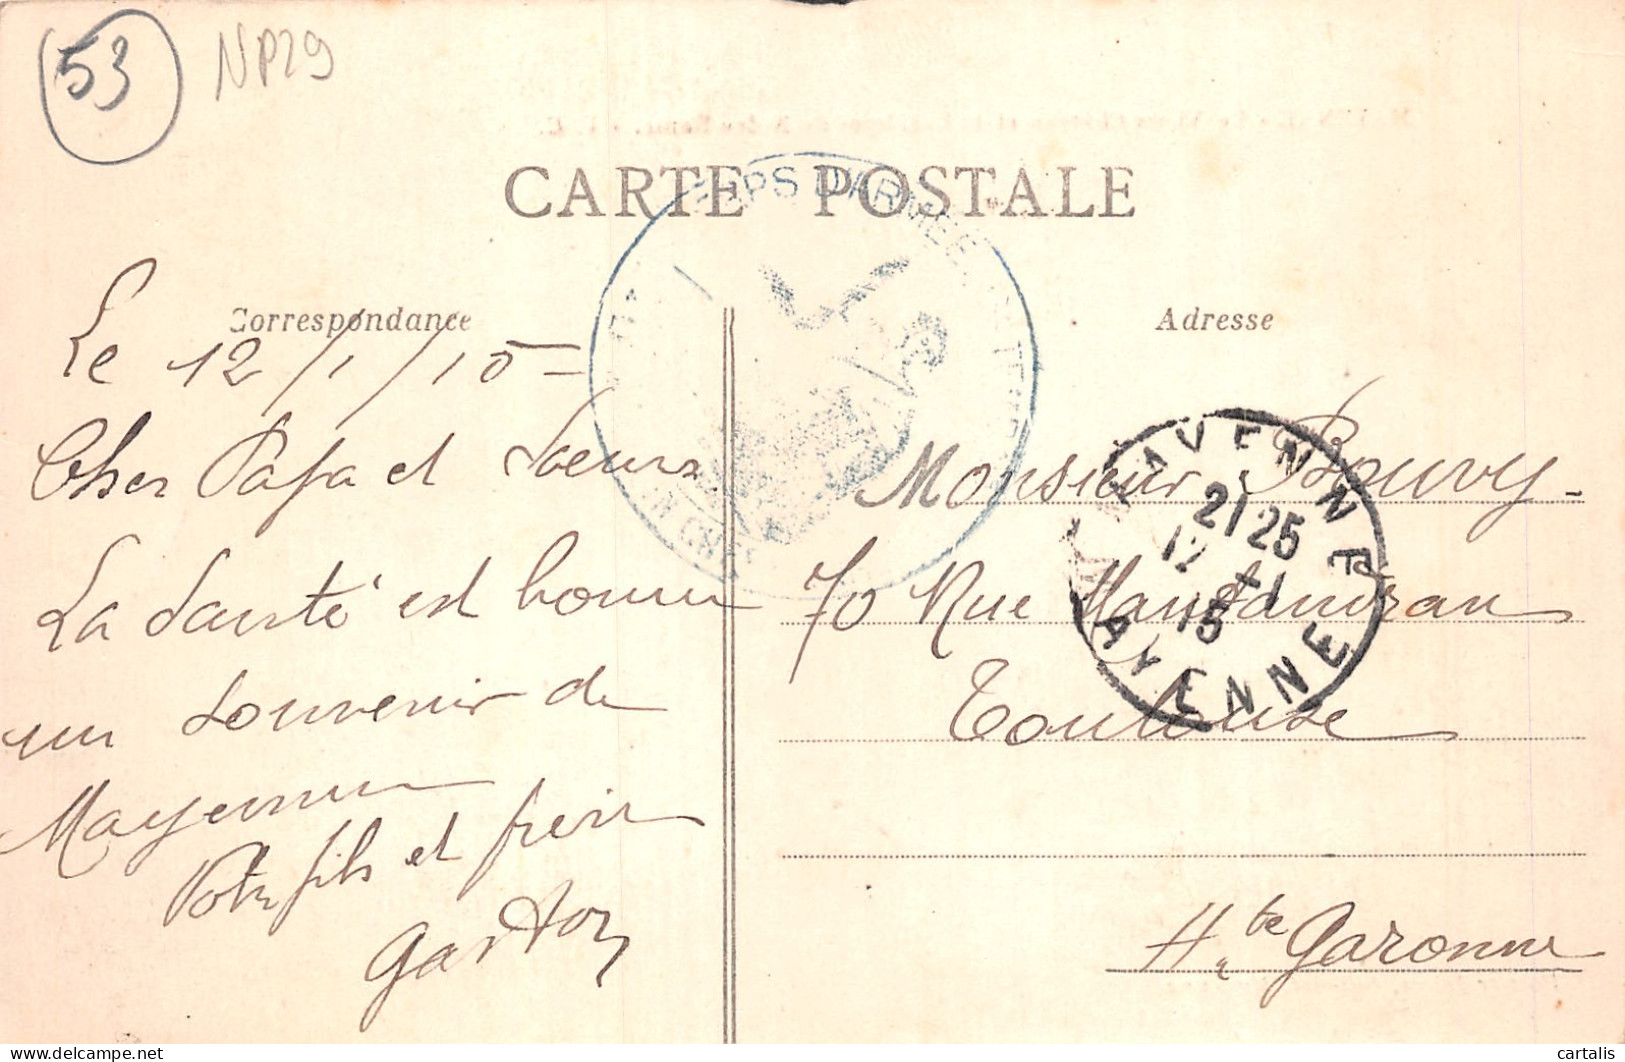 53 NP29
CARTE POSTALE
Correspondance
Adresse
Le 12/1/15
Cher Papa et Soeurs
La Santé est bonne
un Souvenir de
Mayenne
Votre fils et frère
Gaston
Monsieur Bouvy
70 Rue
Toulouse
Hte Garonne
MAYENNE
21 25
12 - 1
15
MAYENNE
D'ARMEE
cartalis
delcampe.net